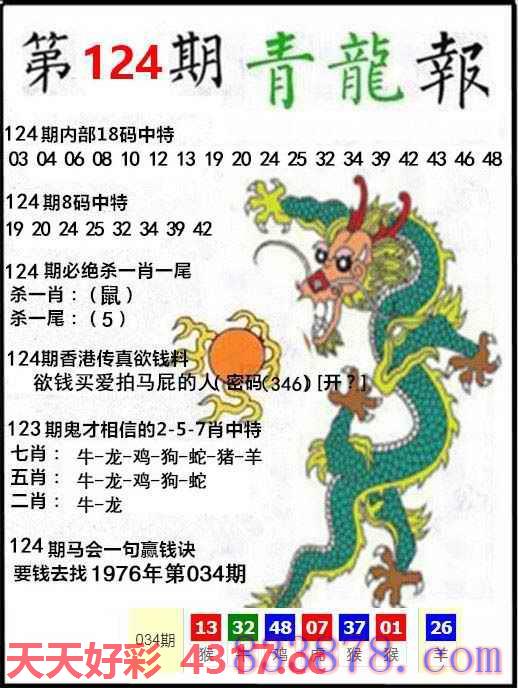 第124期青龍報
124期内部18码中特
03 04 06 08 10 12 13 19 20 24 25 32 34 39 42 43 46 48
124期8码中特
19 20 24 25 32 34 39 42
124期必绝杀一肖一尾
杀一肖：（鼠）
杀一尾：（5）
124期香港传真欲钱料
欲钱买爱拍马屁的人(密码(346)[开?]
123期鬼才相信的2-5-7肖中特
七肖： 牛-龙-鸡-狗-蛇-猪-羊
五肖： 牛-龙-鸡-狗-蛇
二肖： 牛-龙
124期马会一句赢钱诀
要钱去找1976年第034期
034期 13 32 48 07 37 01 26
猴 鸡 虎 猴 猴 羊
天天好彩 4317.cc